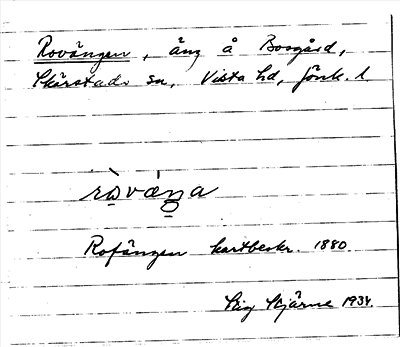 Rovängen, äng å Boogård,
Skärstads sn, Vista hd, Jönk. l.
ròväŋa
Rofängen kartbeskr. 1880.
Stig Bjärne 1934.